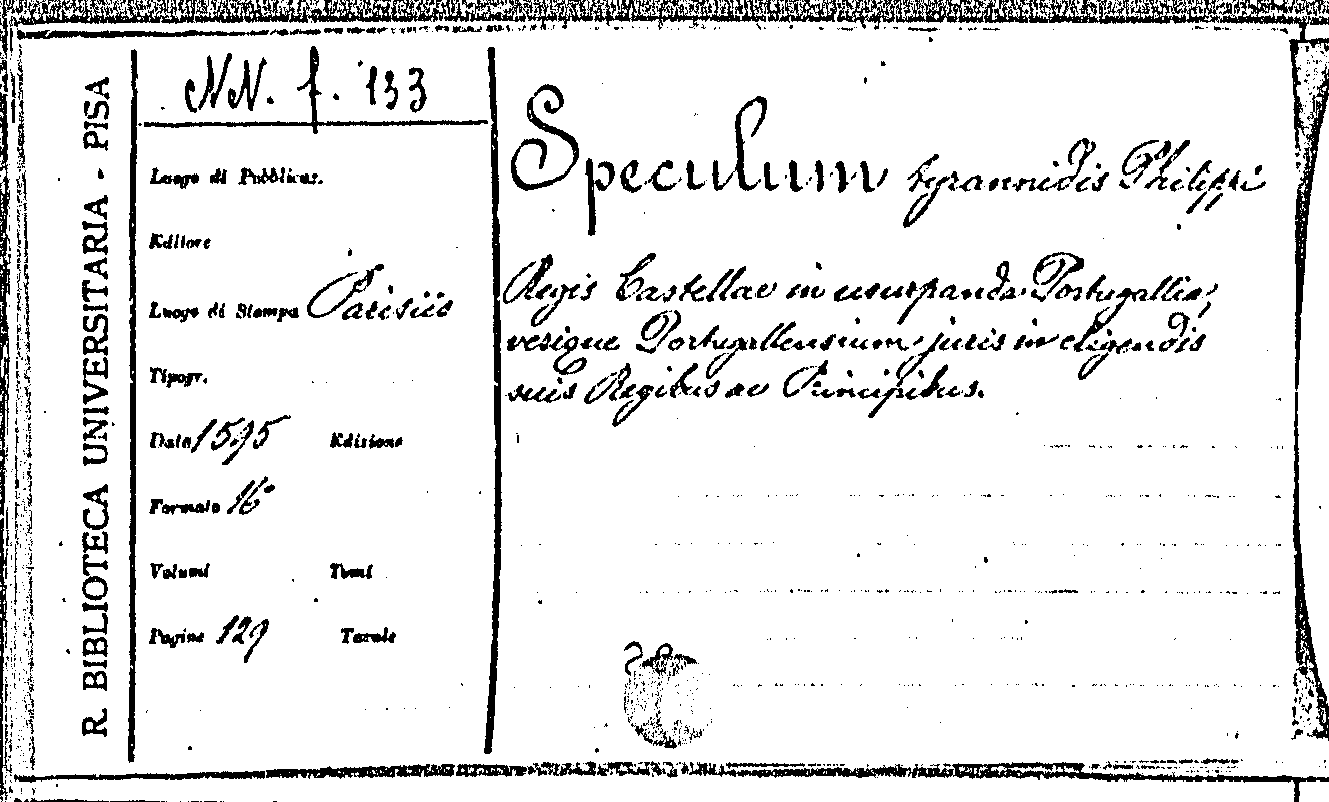 R. BIBLIOTECA UNIVERSITARIA - PISA
NN. f. 133
Luogo di Pubblicaz.
Editore
Luogo di Stampa Parisiis
Tipogr.
Data 1595 Edizione
Formato 16°
Volumi Tomi
Pagine 129 Tavole
Speculum tyrannidis Philippi
Regis Castellae in usurpanda Portugallia,
verique Portugallensium juris in eligendis
suis Regibus ac Principibus.